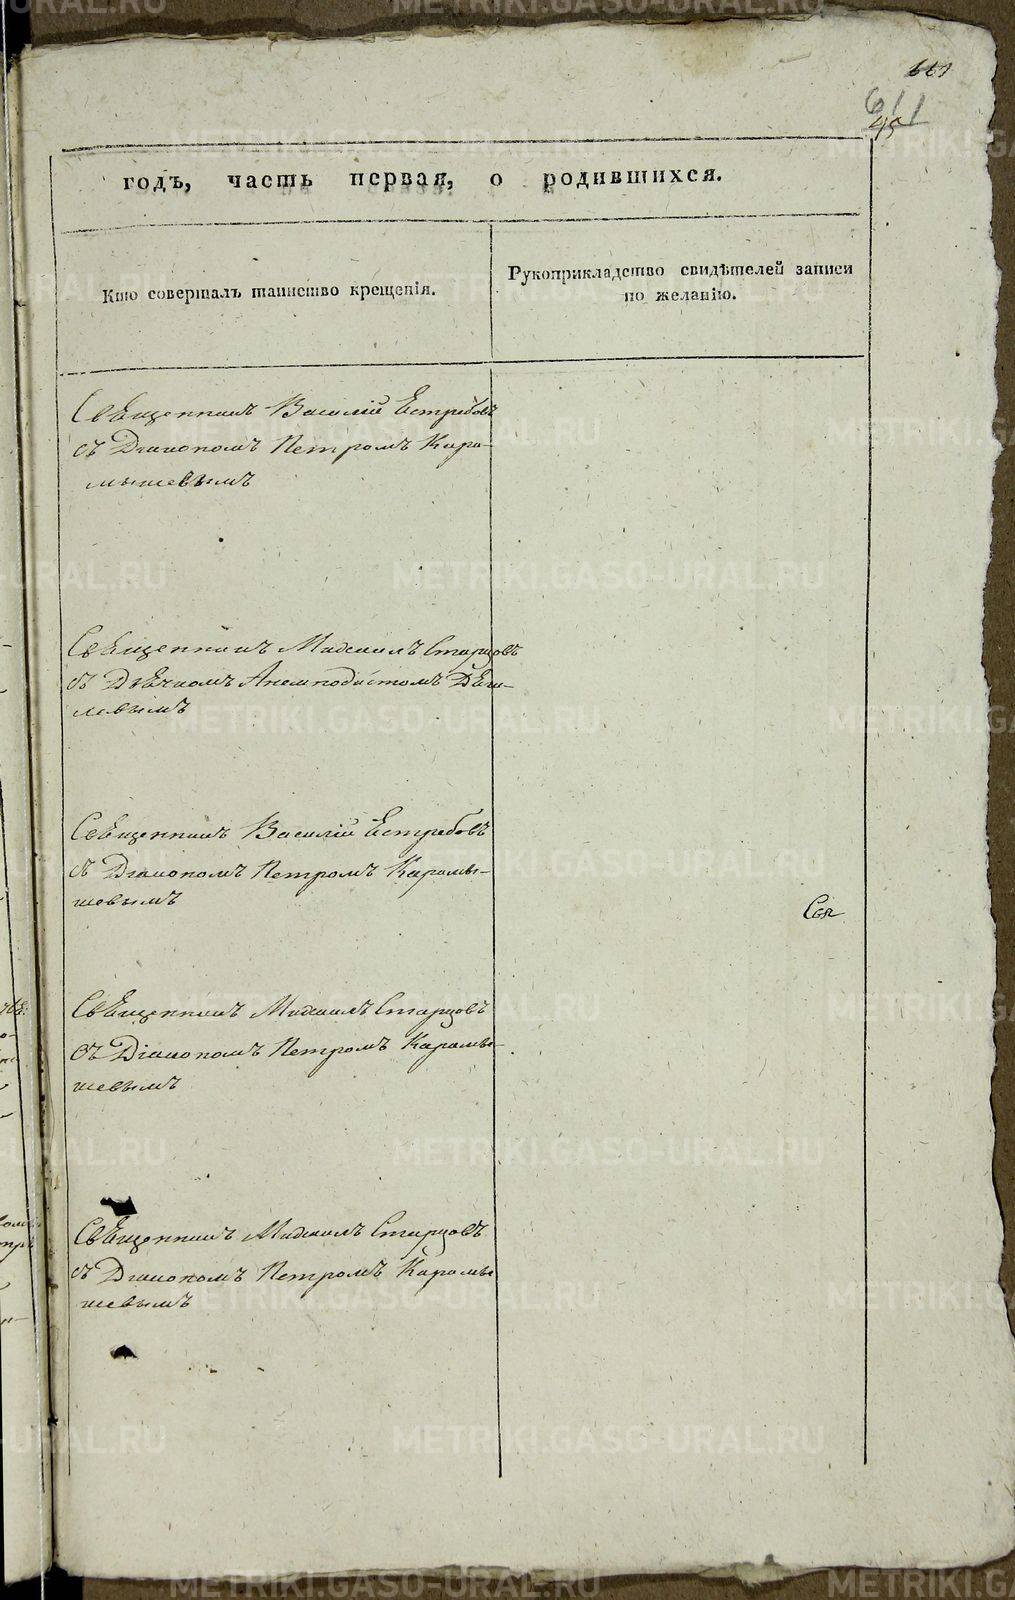 611
45
годъ, часть первая, о родившихся.
Кто совершалъ таинство крещенія.
Рукоприкладство свидѣтелей записи
по желанію.
Священникъ Василій Естребовъ
съ Діакономъ Петромъ Кара-
мышевымъ
Священникъ Михаилъ Старцовъ
съ Дьячкомъ Анемподистомъ
левымъ
Священникъ Василій Естребовъ
съ Діакономъ Петромъ Карамы-
шевымъ
Свя
Священникъ Михаилъ Старцовъ
съ Діакономъ Петромъ Карамы-
шевымъ
Священникъ Михаилъ Старцовъ
съ Діакономъ Петромъ Карамы
шевымъ
METRIKI.GASO-URAL.RU